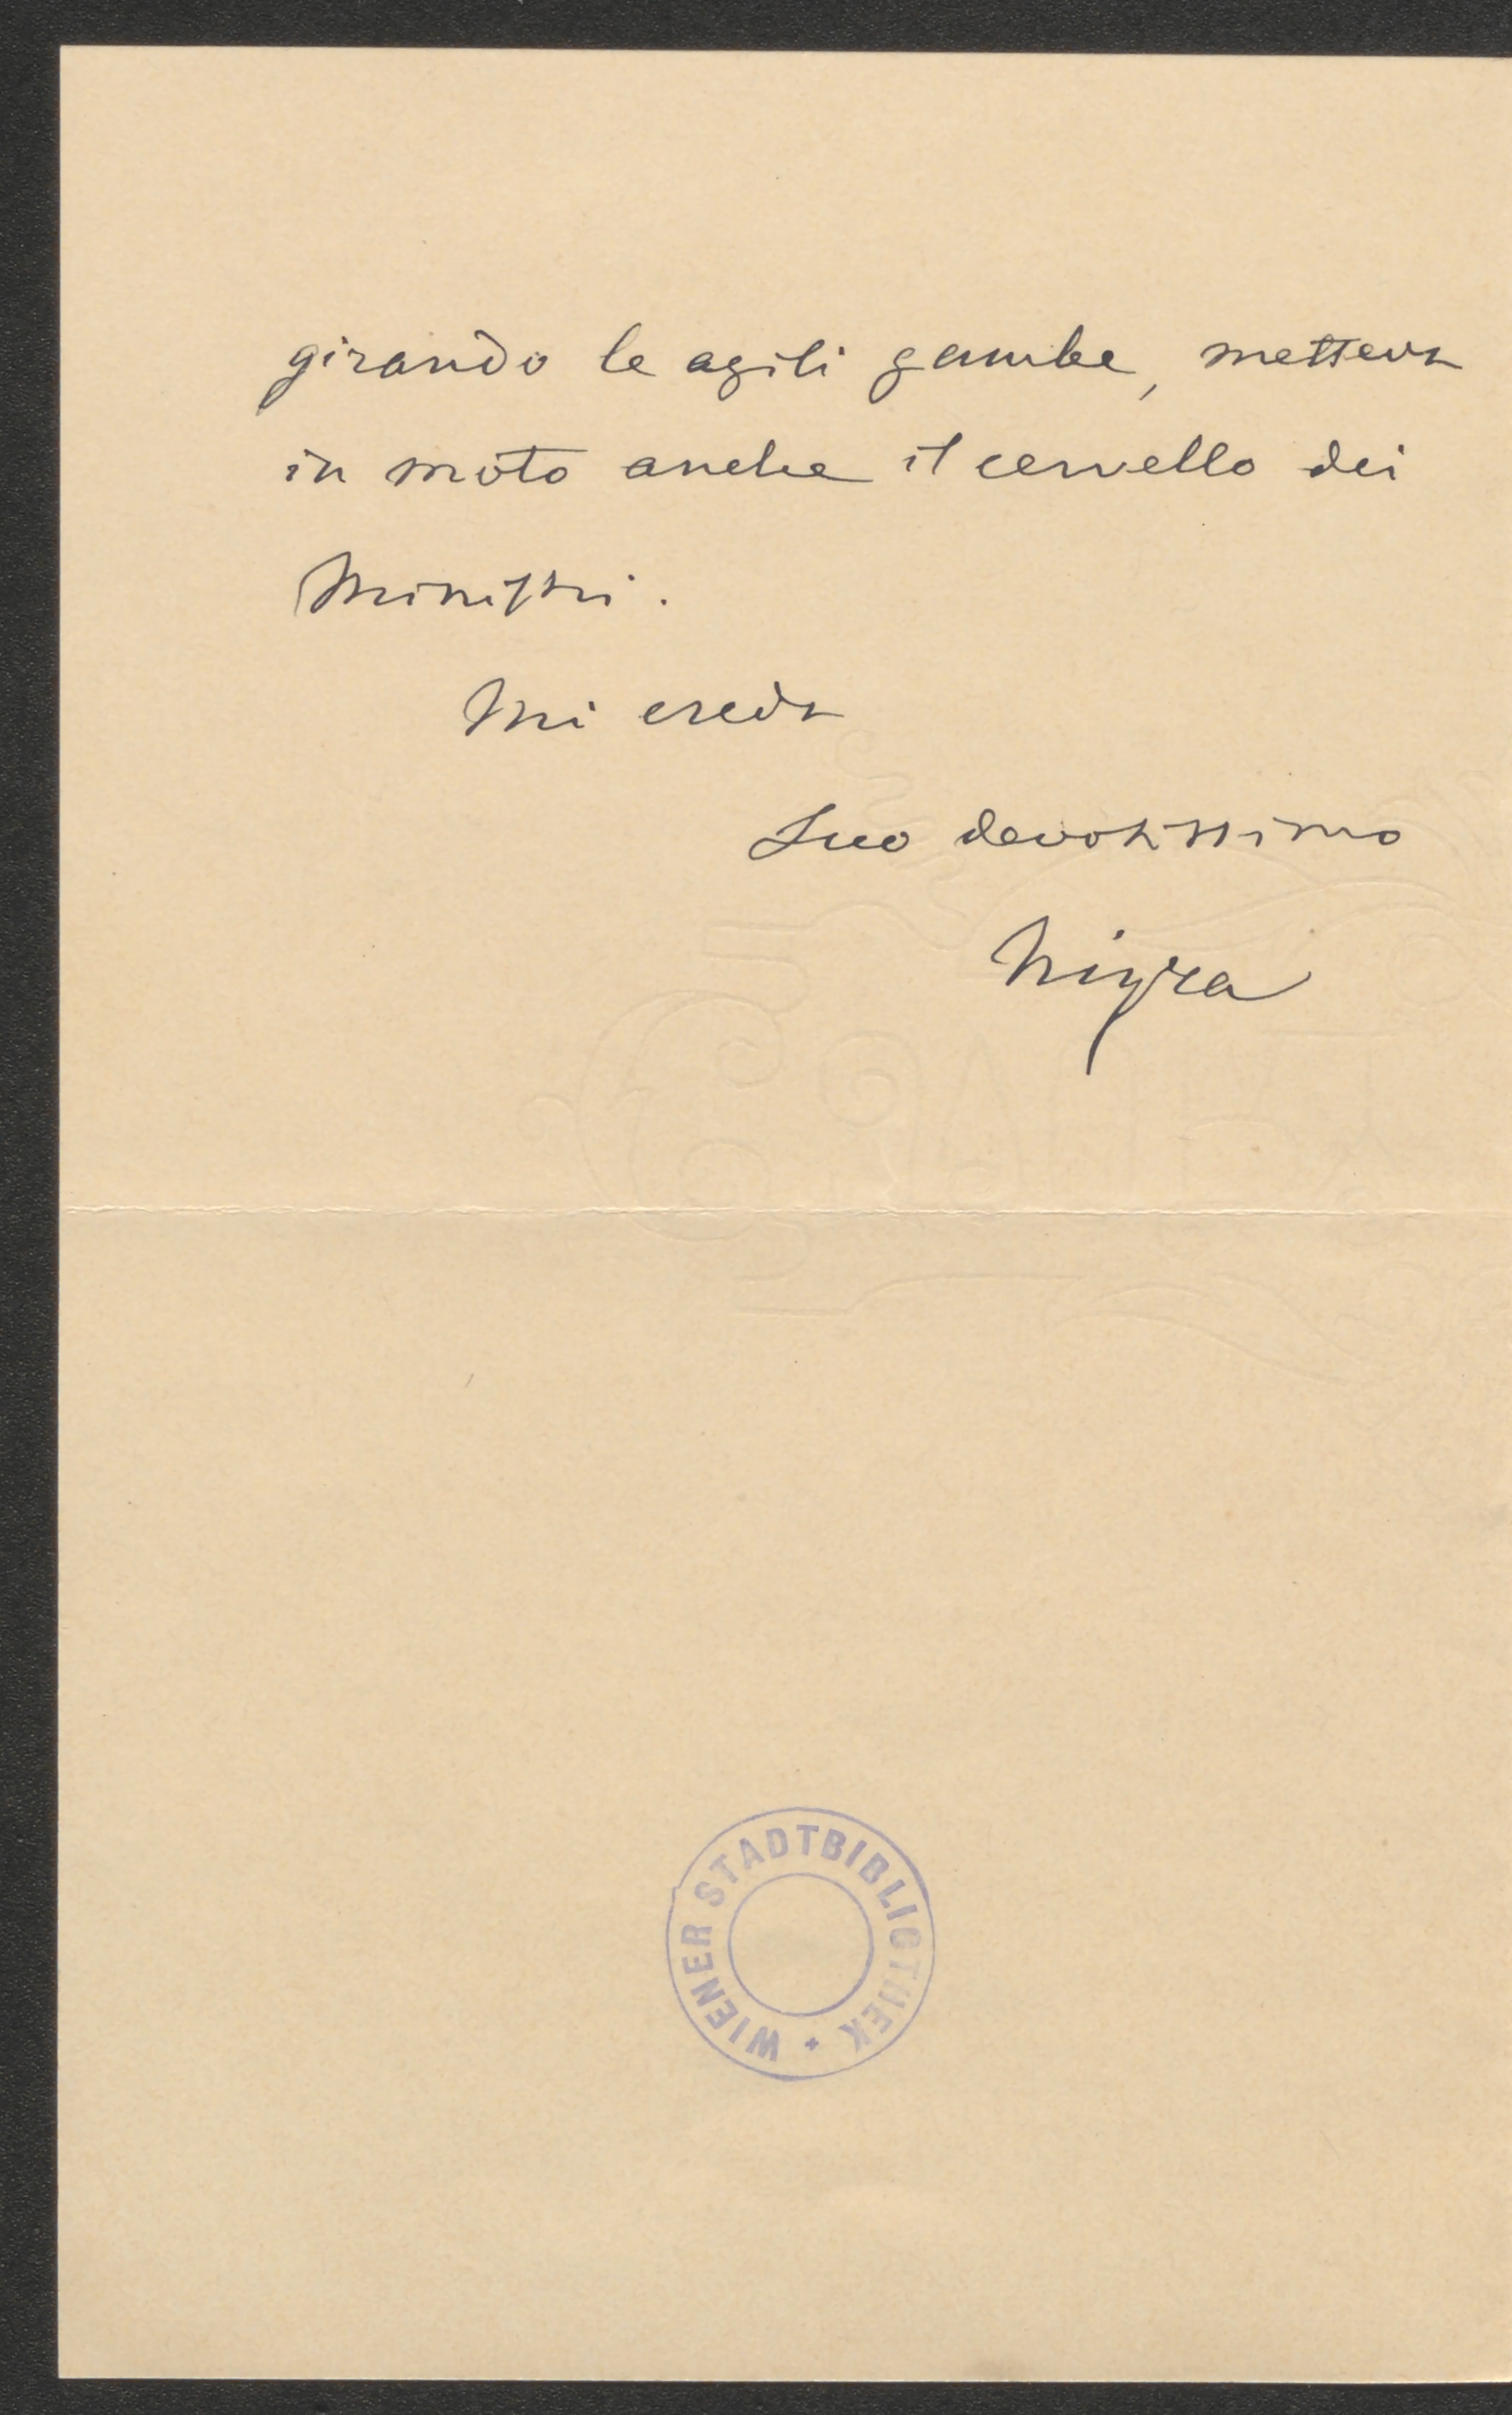 girando le agili gambe, metteva
in moto anche il cervello dei
Ministri.
Mi creda
Suo devotissimo
Nigra
WIENER STADTBIBLIOTHEK